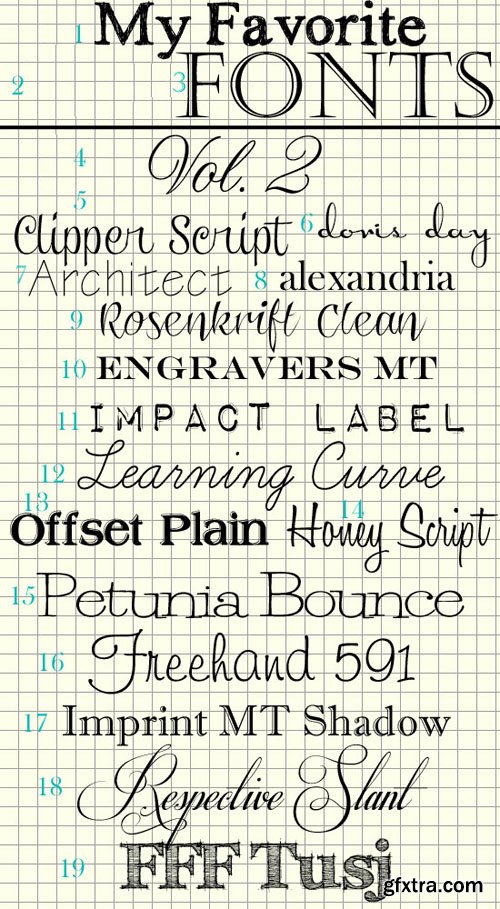 1 My Favorite
2 3 FONTS
4 Vol. 2
5
Clipper Script 6 doris day
7 Architect 8 alexandria
9 Rosenkrift Clean
10 ENGRAVERS MT
11 IMPACT LABEL
12 Learning Curve
13 14
Offset Plain Honey Script
15 Petunia Bounce
16 Freehand 591
17 Imprint MT Shadow
18 Respective Slant
19 FFF Tusj
gfxtra.com